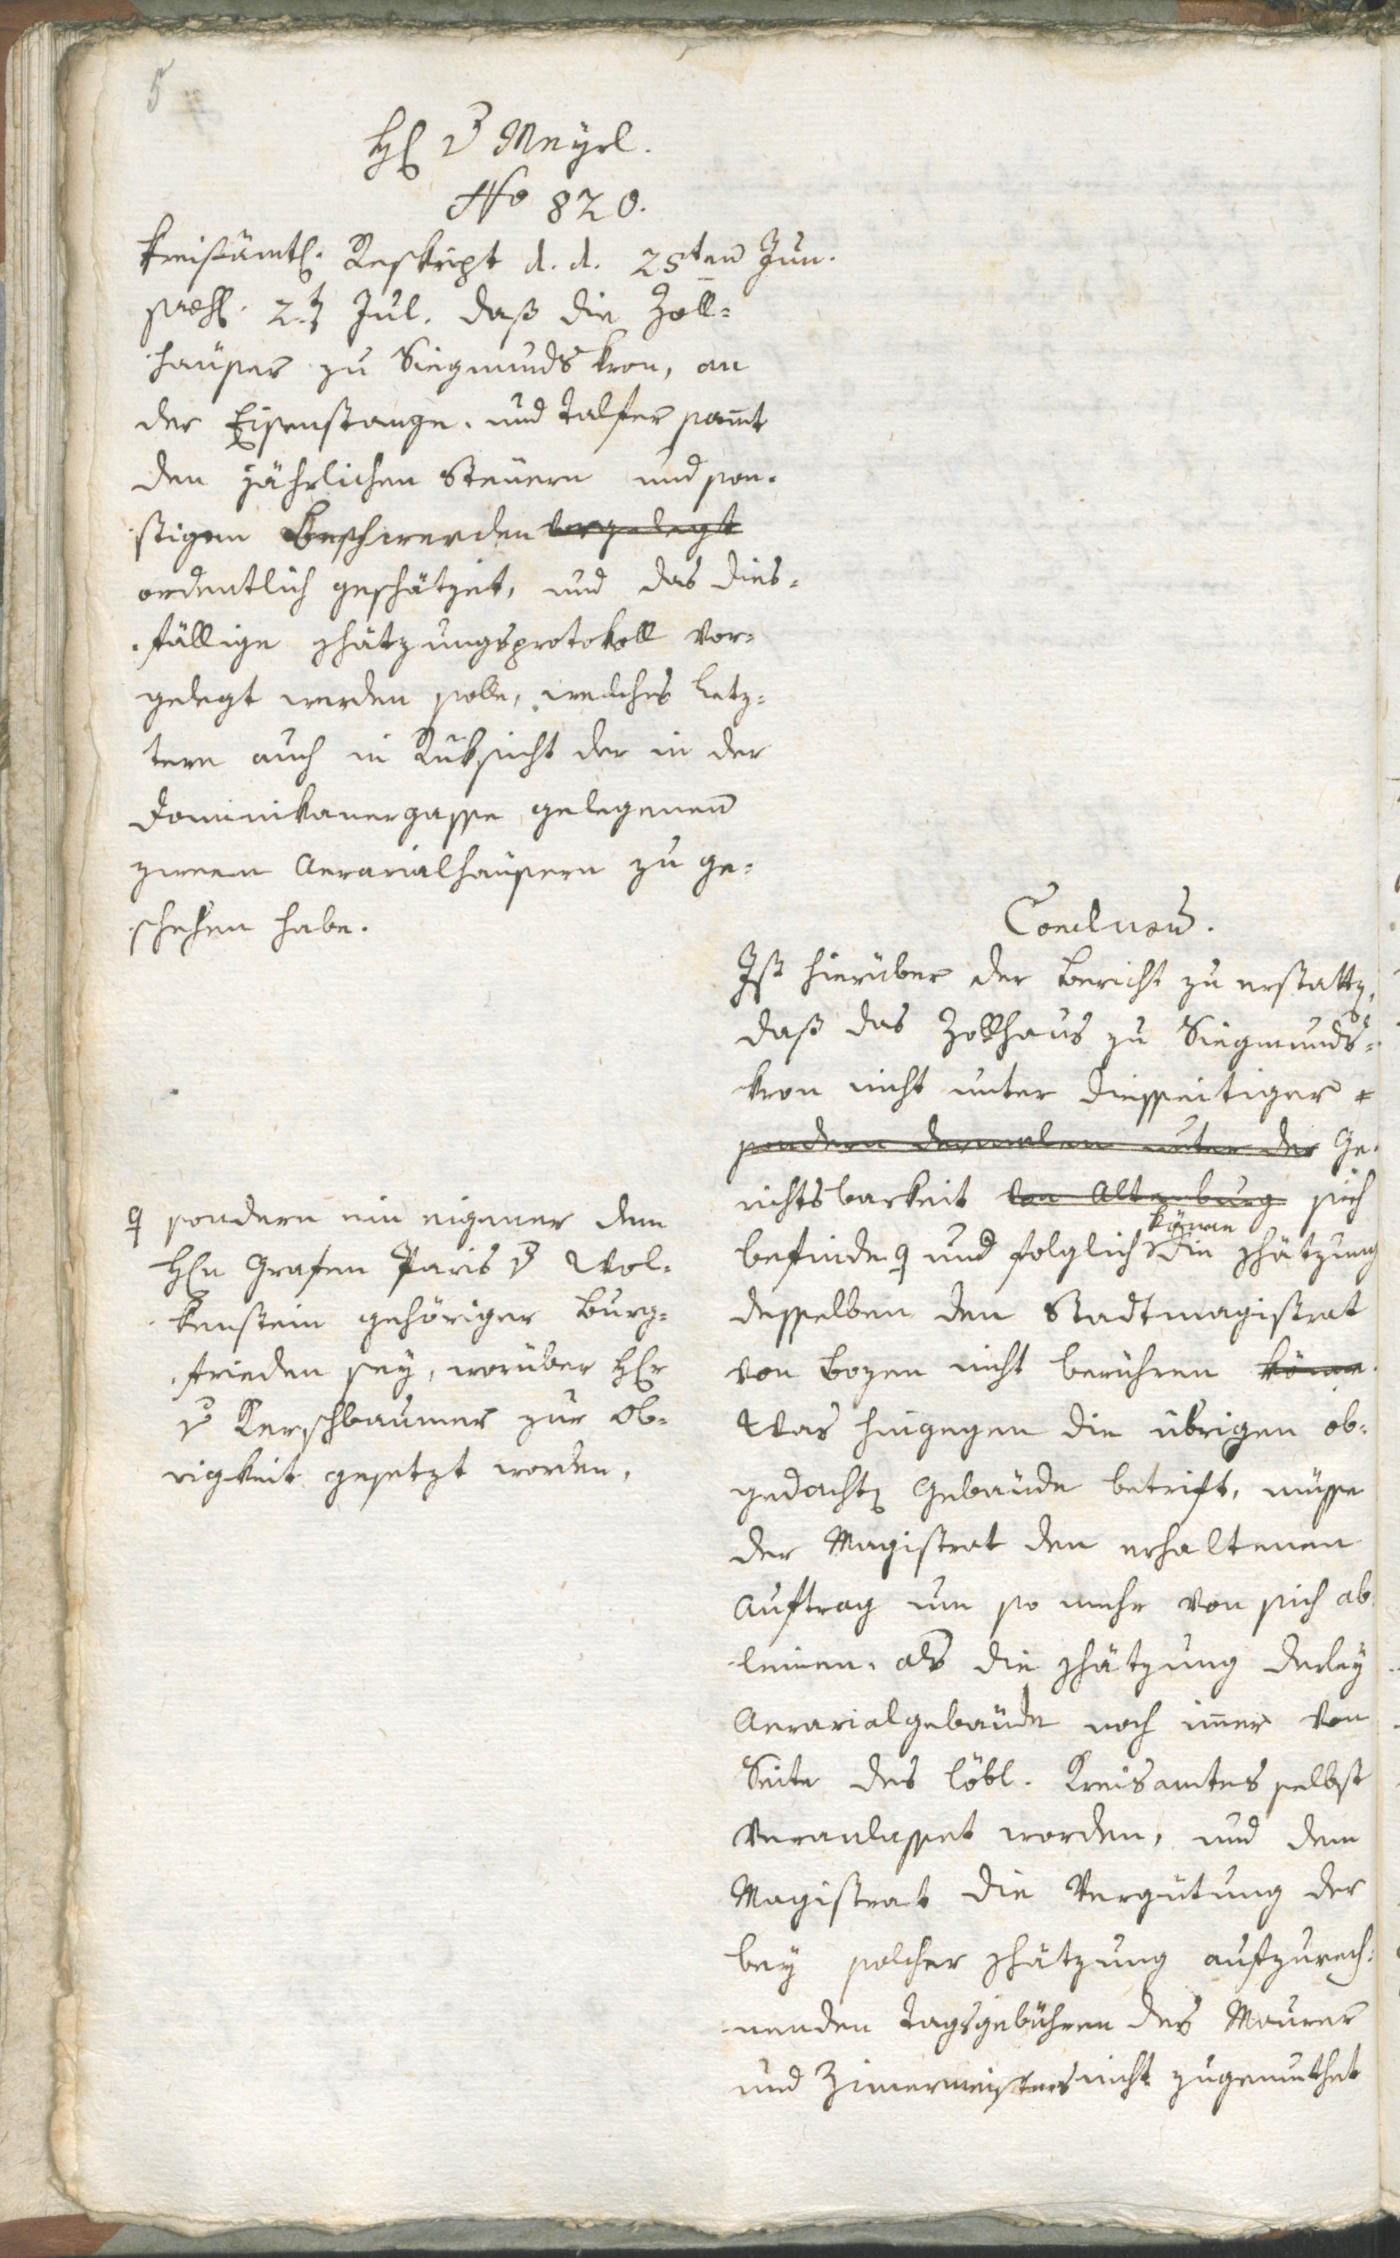 5
H v Meÿrl.
No 820.
Kreißämtl. Reskript d. d. 25ten Jun.
2t Jul. daß die Zoll=
häuser zu Siegmundskron, an
der Eisenstange, und Talfer samt
den jährlichen Steuern und son=
stigen Beschwerden vorgelegt
ordentlich geschätzet, und das dies=
fällige Schätzungsprotokoll vor=
gelegt werden solle, welches letz=
tere auch in Ruksicht der in der
Dominikanergasse gelegenen
zween Aerarialhäusern zu ge=
schehen habe.
Conclusum.
Ist hierüber der Bericht zu erstatten,
daß das Zollhaus zu Siegmunds=
kron nicht unter diesseitiger
sondern dermalen unter der Ge=
richtsbarkeit von Altenburg sich
könne
befinde und folglich die Schätzung
desselben den Stadtmagistrat
von Bozen nicht berühren könne.
Was hingegen die übrigen ob=
gedachten Gebäude betrift, müsse
der Magistrat den erhaltenen
Auftrag um so mehr von sich ab
leinen, als die Schätzung derley
Aerarialgebäude noch imer von
Seite des löbl. Kreisamtes selbst
veranlasset worden, und dem
Magistrat die Vergütung der
bey solcher Schätzung aufzurech=
nenden Tagsgebühren des Maurer
und Zimermeisters nicht zugemuthet
sondern ein eigener dem
Hn Grafen Paris v Wol=
kenstein gehöriger Burg=
frieden sey, worüber Hr
v Kerschbaumer zur Ob=
rigkeit gesetzt worden,